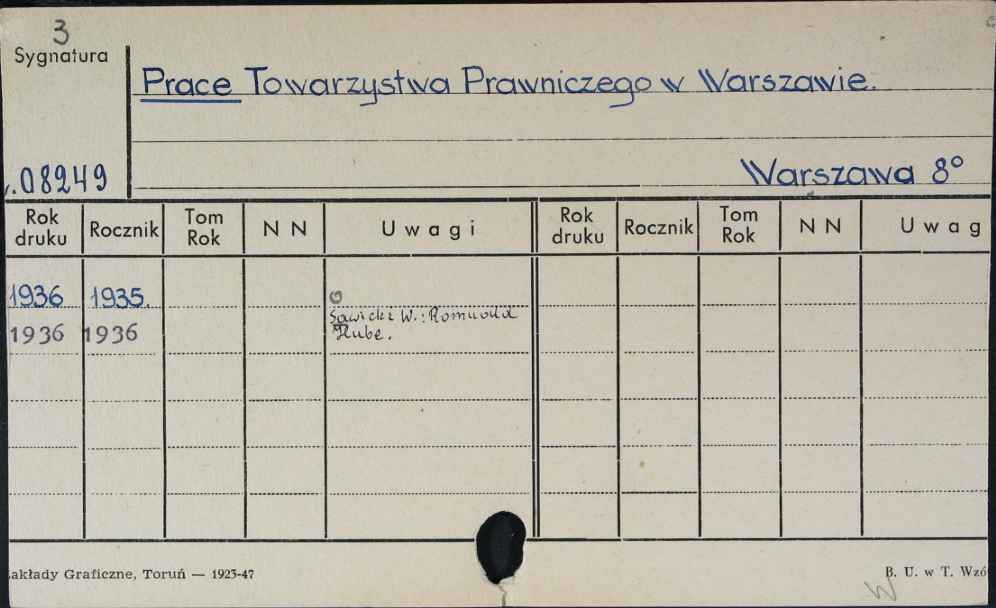 3
Sygnatura
Prace Towarzystwa Prawniczego w Warszawie.
.08249
Warszawa 8°
Rok druku Rocznik Tom Rok N N Uwagi Rok druku Rocznik Tom Rok N N Uwag
1936 1935.
Sawicki W.: Romuald
1936 1936 Hube.
akłady Graficzne, Toruń — 1923-47
B. U. w T. Wzó
W